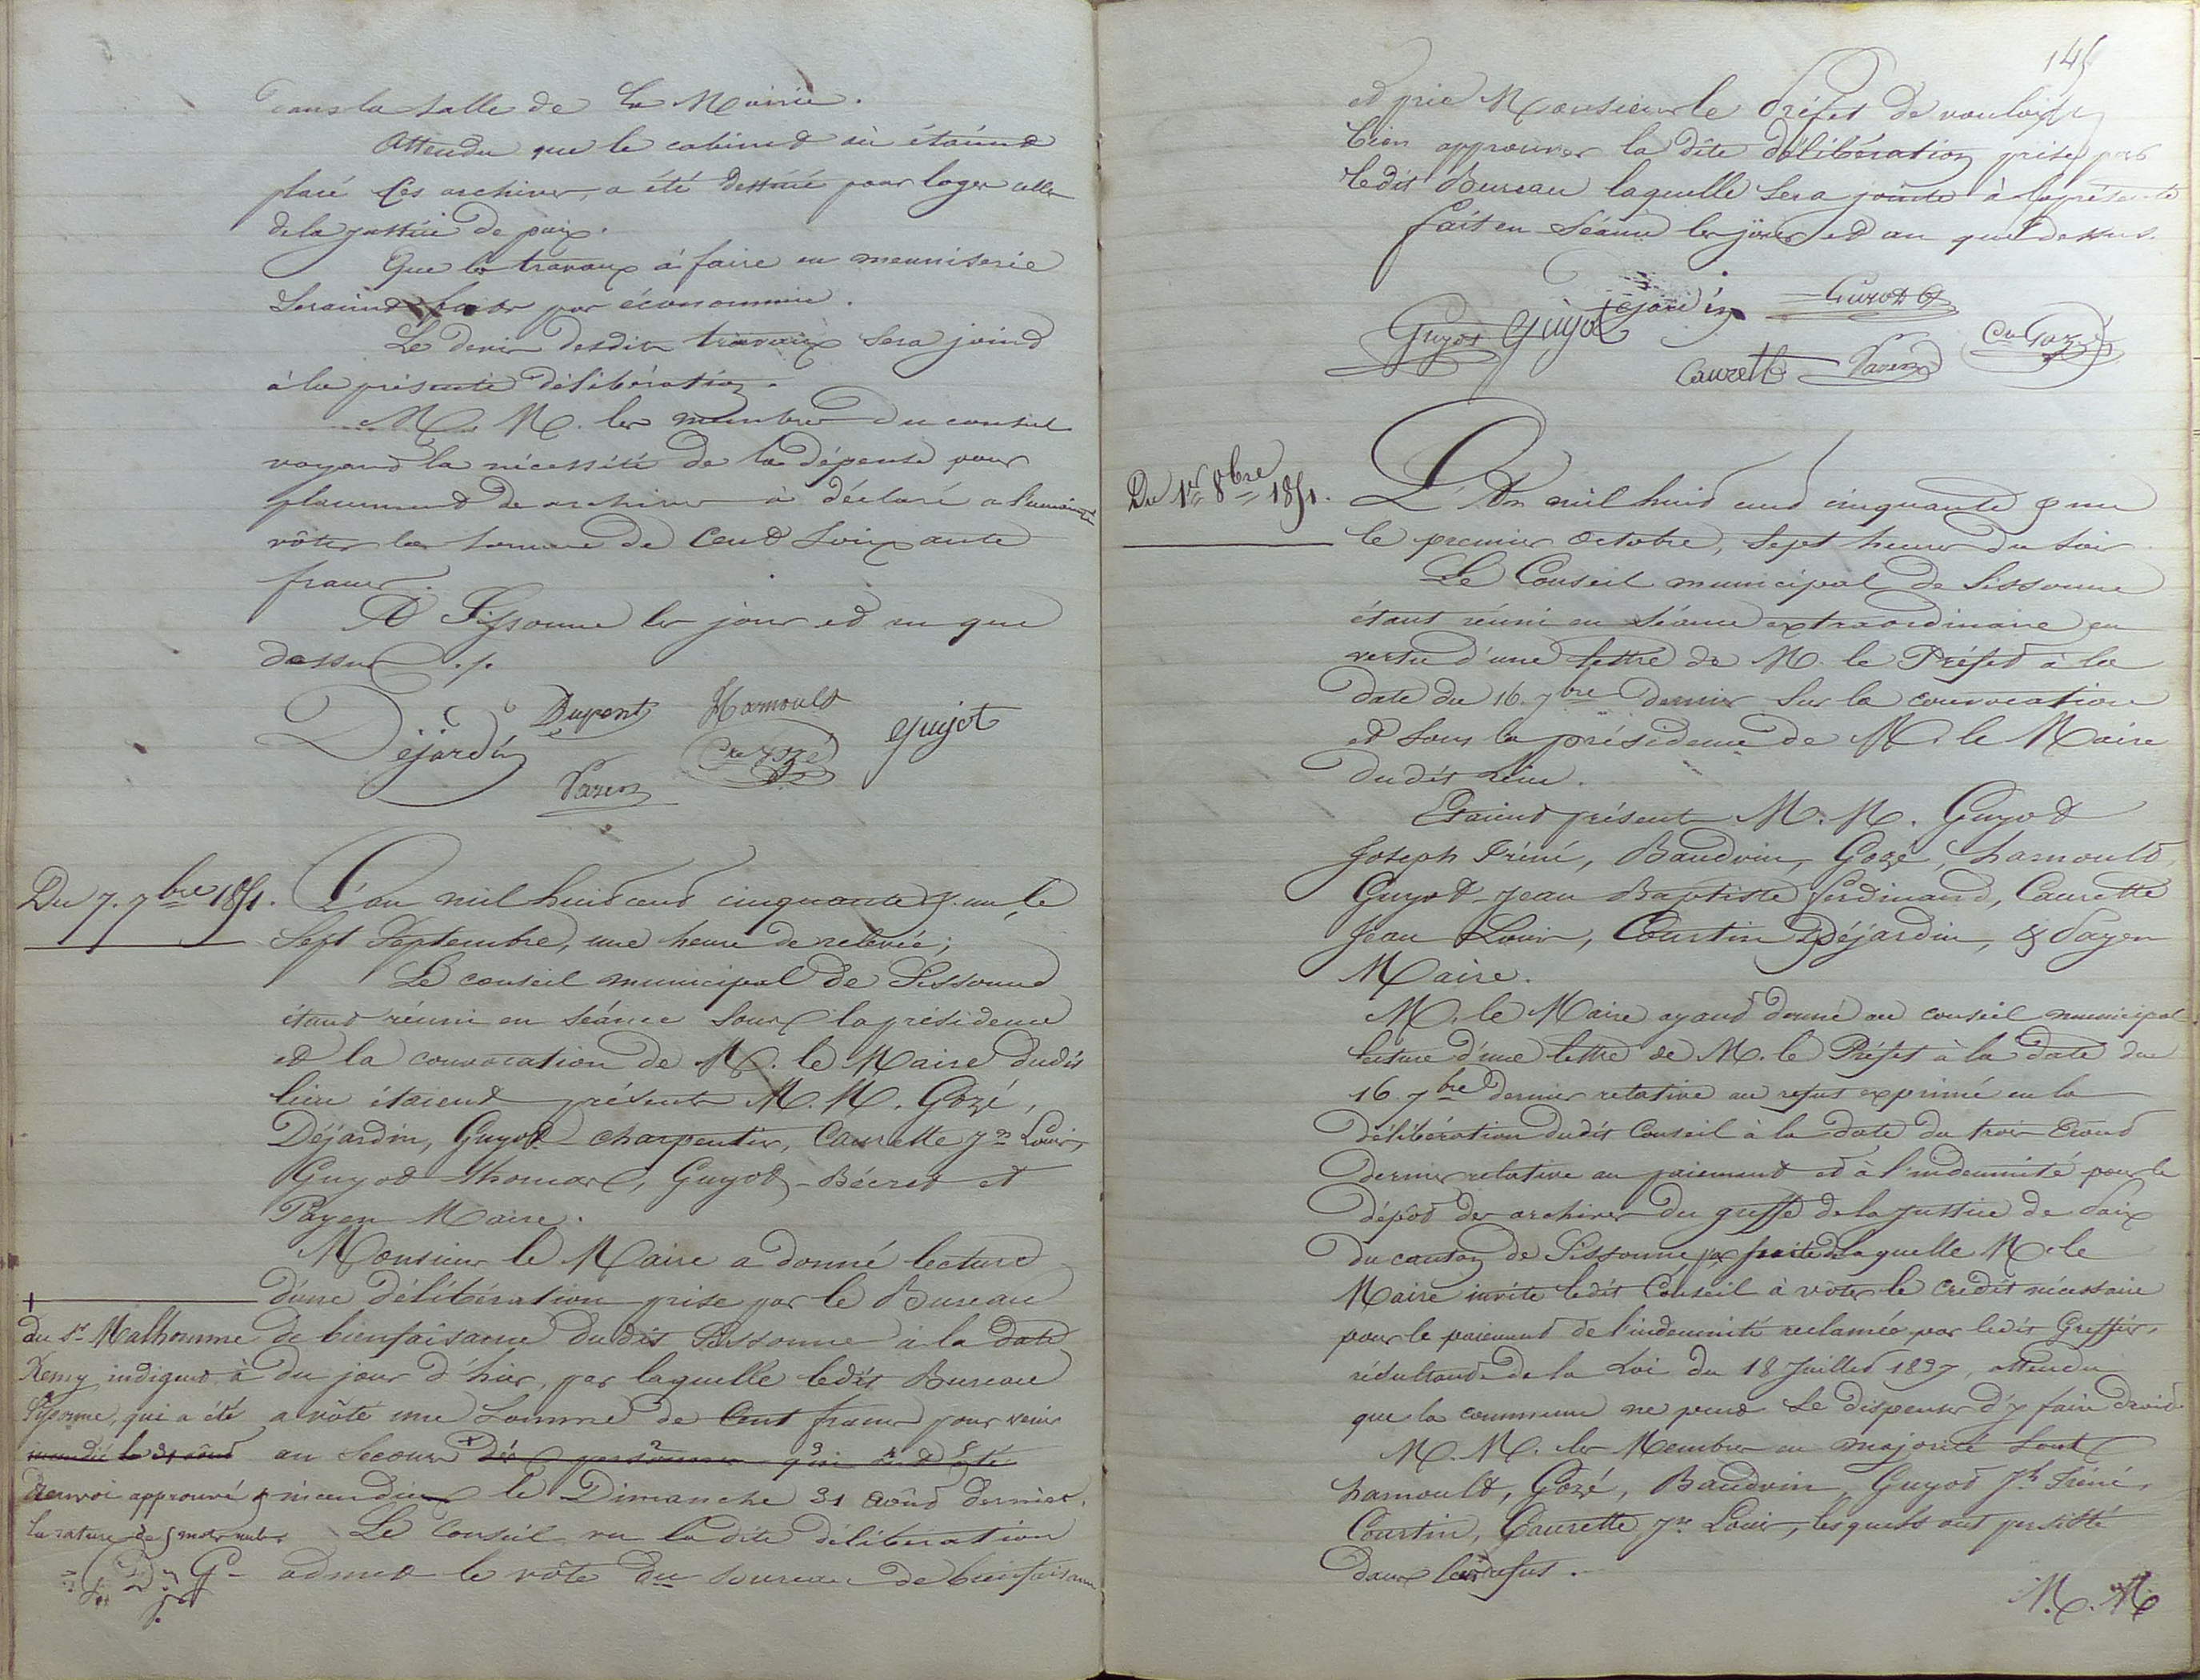 dans la salle de la Mairie.
Attendu que le cabinet où étaient
placé les archives, a été destiné pour loger celles
de la justice de paix.
Que les travaux à faire en menuiserie
seraient faits par économie.
Le devis desdits travaux sera joint
à la présente délibération.
M. M. les membres du conseil
voyant la nécessité de la dépense pour
placement de archives à déclaré a l'unanimité
vôter la somme de Cent soixante
francs.
A Sissonne les jour et an que
dessus ./.
Déjardin Dupont Harnould Guyot
Payen Cre Gozé
Du 7. 7bre 1851.
L'an mil huit cent cinquante & un, le
Sept Septembre, une heure de relevée;
Le conseil municipal de Sissonne
étant réuni en séance sous la présidence
et la convocation de M. le Maire dudit
lieu étaient présents M. M. Gozé,
Déjardin, Guyot charpentier, Caurette Jn Louis,
Guyot Thomas, Guyot-Bécret et
Payen Maire.
Monsieur le Maire a donné lecture
d'une délibération prise par le Bureau
de bienfaisance dudit Sissonne à la date
du jour d'hier, par laquelle ledit Bureau
a vôté une somme de Cent francs pour venir
au secours + des personnes qui ont été
incendiées le Dimanche 31 août dernier.
Le Conseil vu la dite délibération
admet le vôte du bureau de bienfaisance
+
du sr Malhomme
Remy indigent à
Sissonne, qui a été
incendié le 31 août
Renvoi approuvé &
la rature de 5 mots nuls
145
et prie Monsieur le Préfet de vouloir
bien approuver la dite délibération prise par
ledit Bureau laquelle sera jointe à la présente
fait en Séance les jour et an que dessus.
Guyot Guyot Déjardin Guyot
Caurette Payen Cre Gozé
Du 1er 8bre 1851.
L'An mil huit cent cinquante & un
le premier Octobre, Sept heures du soir
Le Conseil municipal de Sissonne
étant réuni en séance extraordinaire en
vertu d'une lettre de M. le Préfet à la
date du 16. 7bre dernier sur la convocation
et sous la présidence de M. le Maire
du dit lieu.
Etaient présents M. M. Guyot
Joseph Fréné, Baudvin, Gozé, harnould,
Guyot-Jean Baptiste ferdinand, Caurette
Jean Louis, Courtin Déjardin, & Payen
Maire.
M. le Maire ayant donné au conseil municipal
lecture d'une lettre de M. le Préfet à la date du
16. 7bre dernier relative au refus exprimé en la
délibération dudit Conseil à la date du trois Août
dernier relative au paiement et à l'indemnité pour le
dépôt des archives du greffe de la justice de Paix
du canton de Sissonne, par suite de laquelle M. le
Maire invite ledit Conseil à vôter le crédit nécessaire
pour le paiement de l'indemnité reclamée par ledit Greffier,
résultant de la Loi du 18 Juillet 1837, attendu
que la commune ne peut se dispenser d'y faire droit.
M. M. les Membres en majorité sont
harnould, Gozé, Baudvin, Guyot Jh Fréné,
Courtin, Caurette Jn Louis, lesquels ont persisté
dans leur refus.
M. M